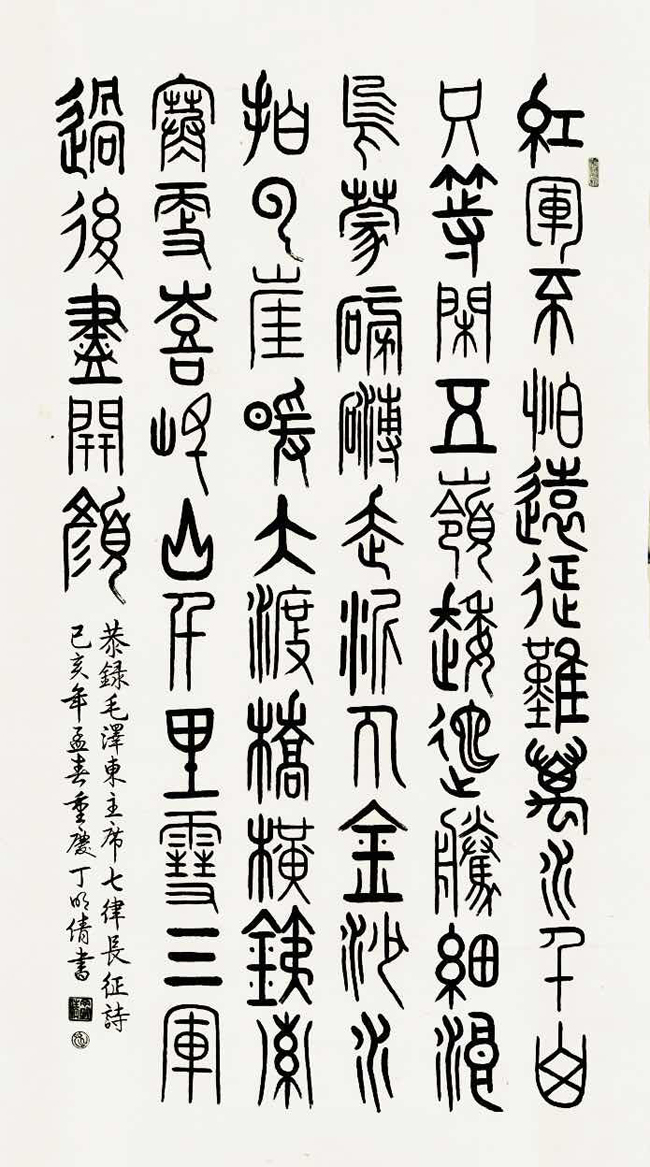 紅軍不怕遠征難萬水千山
只等閑五嶺逶迤騰細浪
烏蒙磅礴走泥丸金沙水
拍雲崖暖大渡橋橫鐵索
寒更喜岷山千里雪三軍
過後盡開顏
恭錄毛澤東主席七律長征詩
己亥年孟春重慶丁明倩書